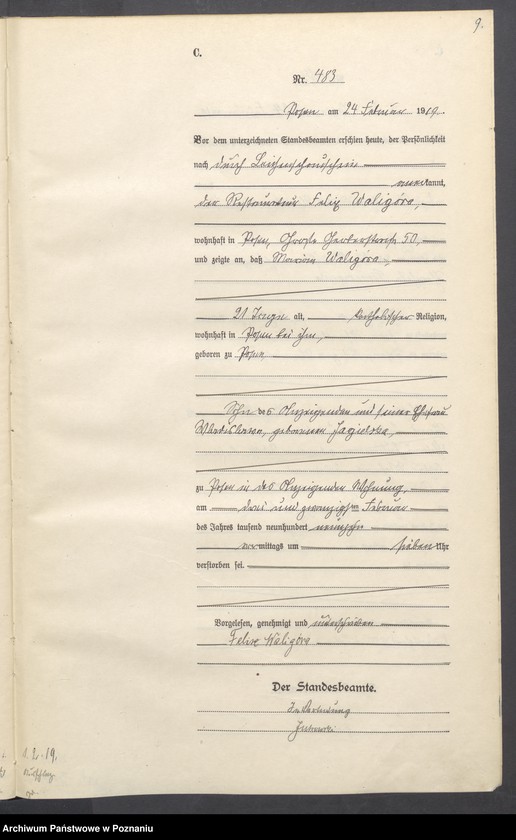 9.
C.
Nr. 483
Posen am 24 Februar 1919.
Vor dem unterzeichneten Standesbeamten erschien heute, der Persönlichkeit
nach durch Leichenschauschein
anerkannt,
der Restaurateur Felix Waligóra,
wohnhaft in Posen, Große Gerberstraße 50,
und zeigte an, daß Marian Waligóra
21 Tage alt, katholischer Religion,
wohnhaft in Posen bei ihm,
geboren zu Posen,
Sohn des Anzeigenden und seiner Ehefrau
Wladislawa, geborenen
zu Posen in des Anzeigenden Wohnung,
am drei und zwanzigsten Februar
des Jahres tausend neunhundert neunzehn
vormittags um sieben Uhr
verstorben sei.
Vorgelesen, genehmigt und unterschrieben
Felix Waligóra
Der Standesbeamte.
In Vertretung
2. 19.
Archiwum Państwowe w Poznaniu